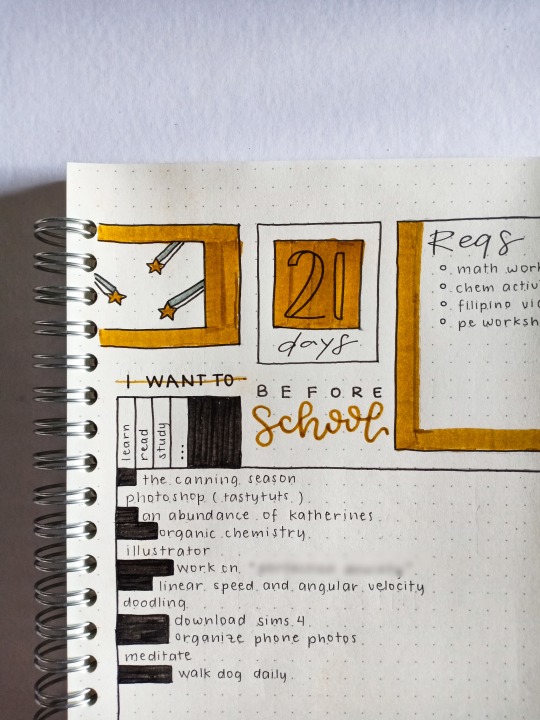 21
days
BEFORE
school
Reqs
math work
chem activ
filipino vid
pe worksh
I WANT TO
learn
read
study
...
the canning season
photoshop (tastytuts)
an abundance of katherines
organic chemistry
illustrator
work on
linear speed and angular velocity
doodling
download sims 4
organize phone photos
meditate
walk dog daily